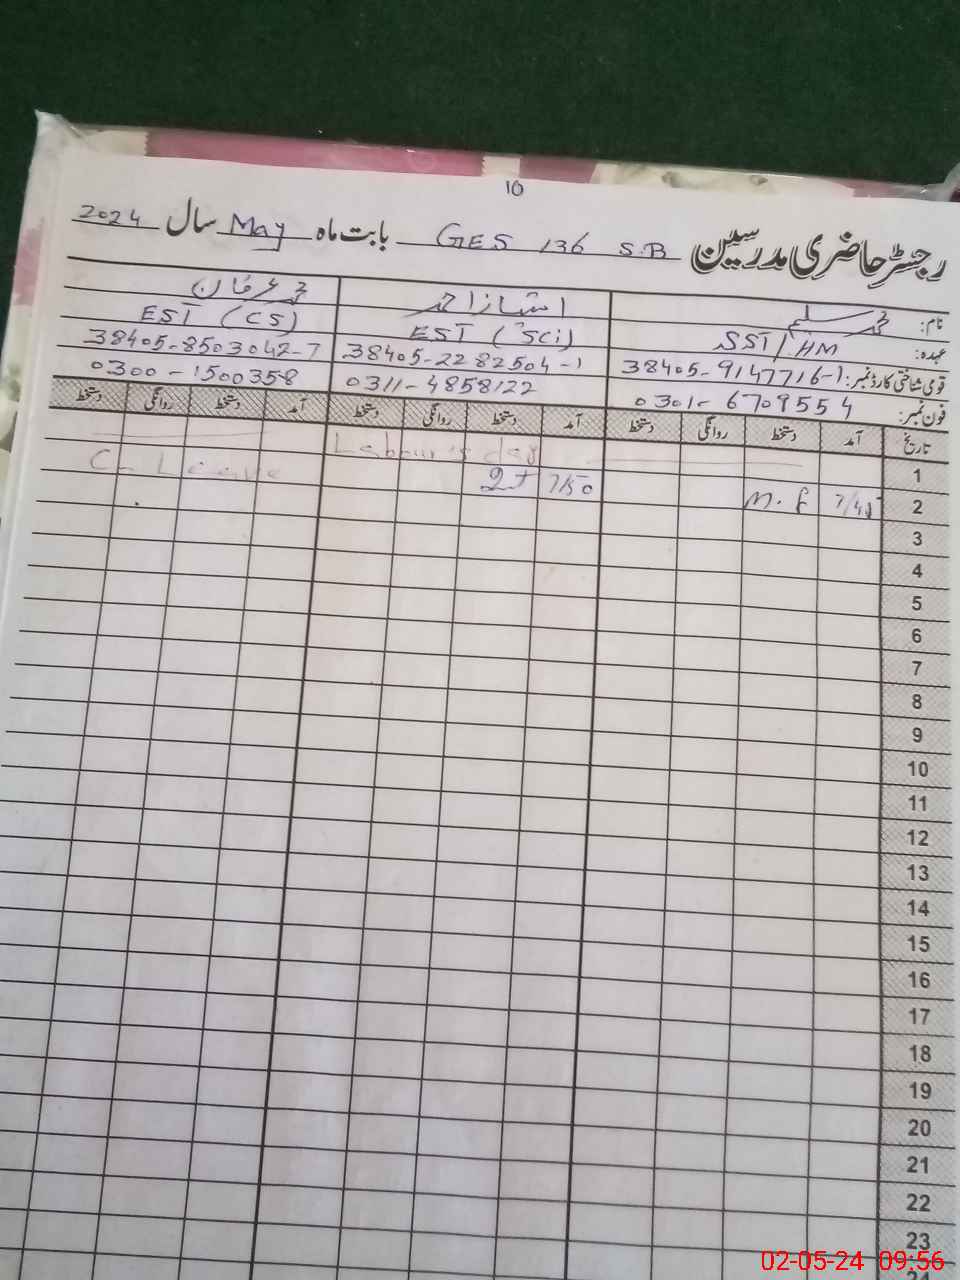 10
رجسٹر حاضری مدرسین GES 136 S.B بابت ماہ May سال 2024
نام: محمد سلیم امتیاز احمد محمد عرفان
عہدہ: SST/HM EST (Sci) EST (CS)
قومی شناختی کارڈ نمبر: 38405-9147716-1 38405-2282504-1 38405-8503042-7
فون نمبر: 0301-6709554 0311-4858122 0300-1500358
تاریخ آمد دستخط روانگی دستخط آمد دستخط روانگی دستخط آمد دستخط روانگی دستخط
1 Labour's day
2 7/45 M. 7/50 C. Leave
3
4
5
6
7
8
9
10
11
12
13
14
15
16
17
18
19
20
21
22
23
02-05-24 09:56